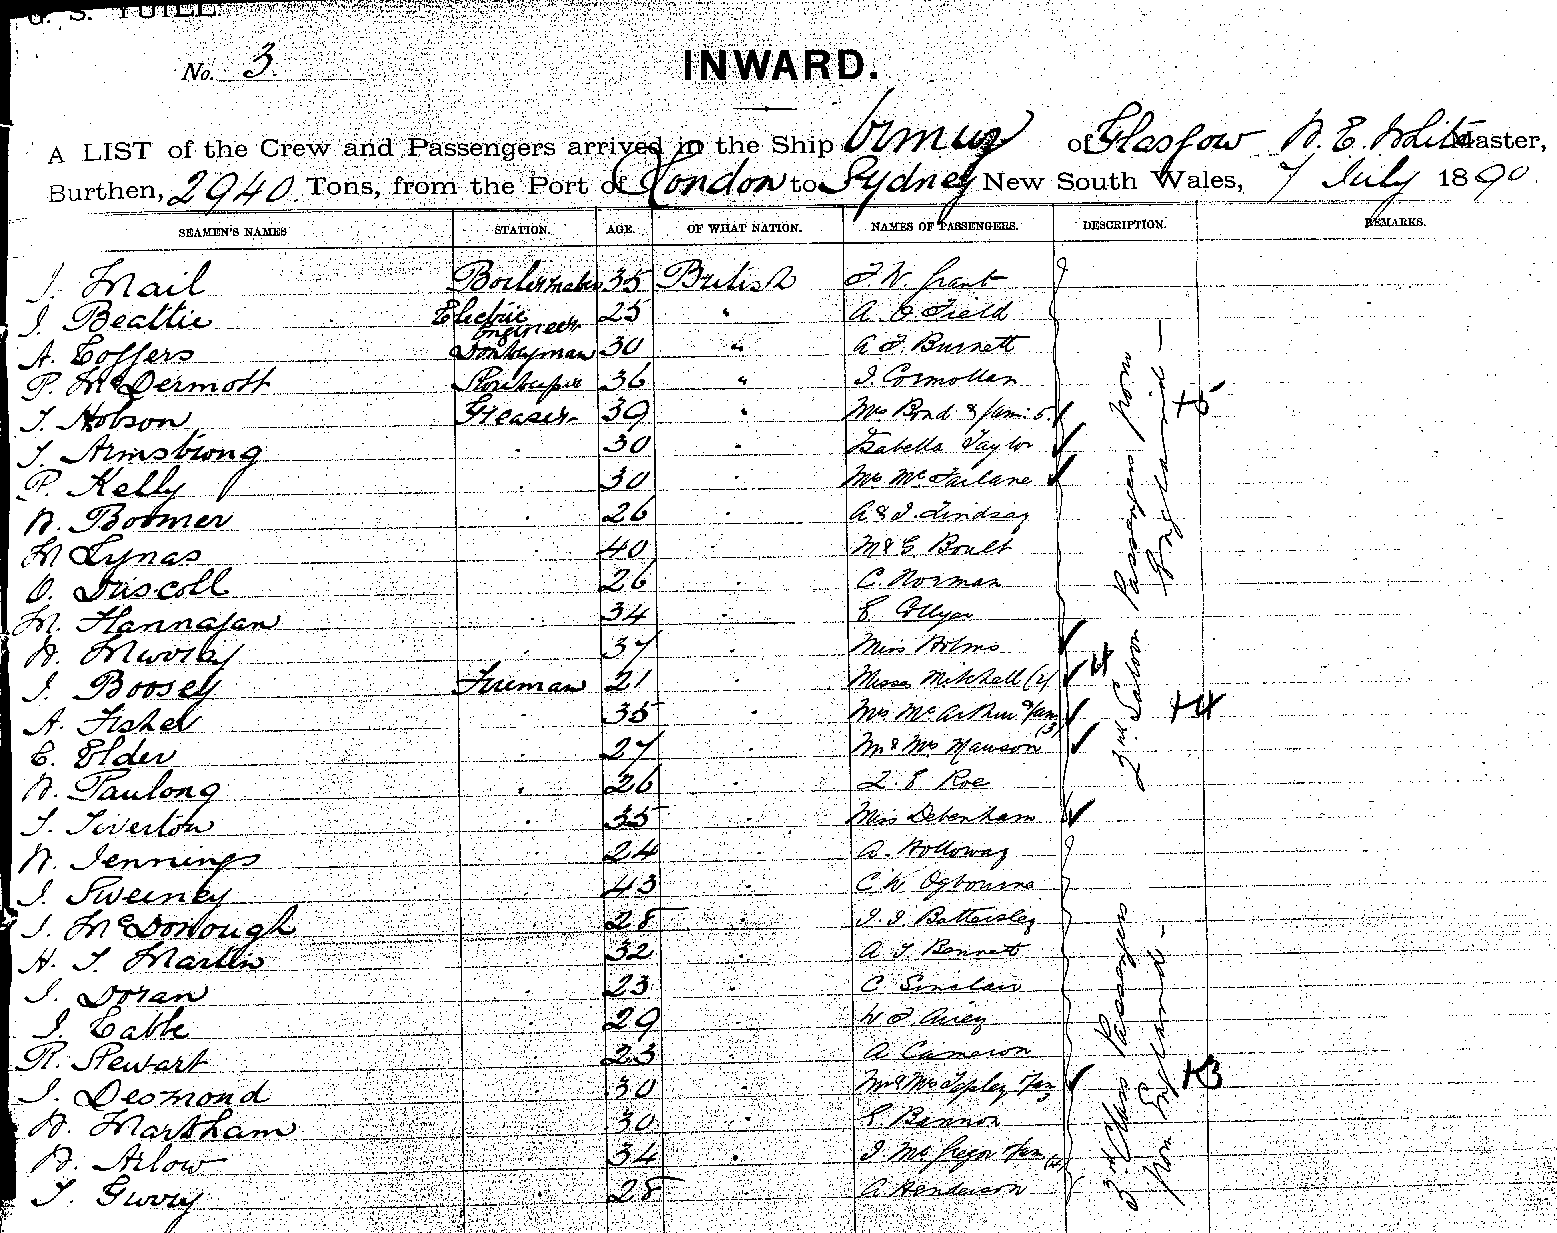 No. 3
INWARD.
A LIST of the Crew and Passengers arrived in the Ship Ormuz of Glasgow N. E. White Master,
Burthen, 2940 Tons, from the Port of London to Sydney New South Wales, 7 July 1890
SEAMEN'S NAMES STATION. AGE. OF WHAT NATION. NAMES OF PASSENGERS. DESCRIPTION. REMARKS.
J. Mail Boilermaker 35 British J. W. Grant
J. Beattie Electric Engineer 25 " A. Field
A. Coffers Donkeyman 30 " A J. Burnett
P. McDermott Storekeeper 36 " J.
T. Hobson Greaser 39 " Mrs Bond & fam: 5 +5
T. Armstrong 30 Isabella Taylor
P. Kelly 30 Mrs McFarlane
W. Boomer 26 A & J. Lindsay
M Lynas 40 M & E Boult
O. Driscoll 26 C. Norman
M. Flannagan 34 E. Collyer
W. Murray 37 Miss Holms
J. Boosey Fireman 21 Misses Mitchell (2) 4
A. Fisher 35 Mrs McArthur & fam (3) +4
E. Elder 27 Mr & Mrs Mawson
W. Paulong 26 L E Roe
T. Tiverton 35 Miss Debenham
2nd Saloon Passengers from England
W. Jennings 24 A. Holloway
J. Sweeney 43 C W Ogbourne
J. McDonough 28 J. J. Battersley
H. T. Martin 32 A T Bennett
J. Doran 23 C Sinclair
J. Cable 29 W J. Airey
R. Stewart 23 A Cameron
J. Desmond 30 Mr & Mrs Fam 3 +3
W. Markham 30 E Bannon
W. Arlow 34 J McGregor Fam
T. Gurry 28 A Henderson
3rd Class Passengers from England